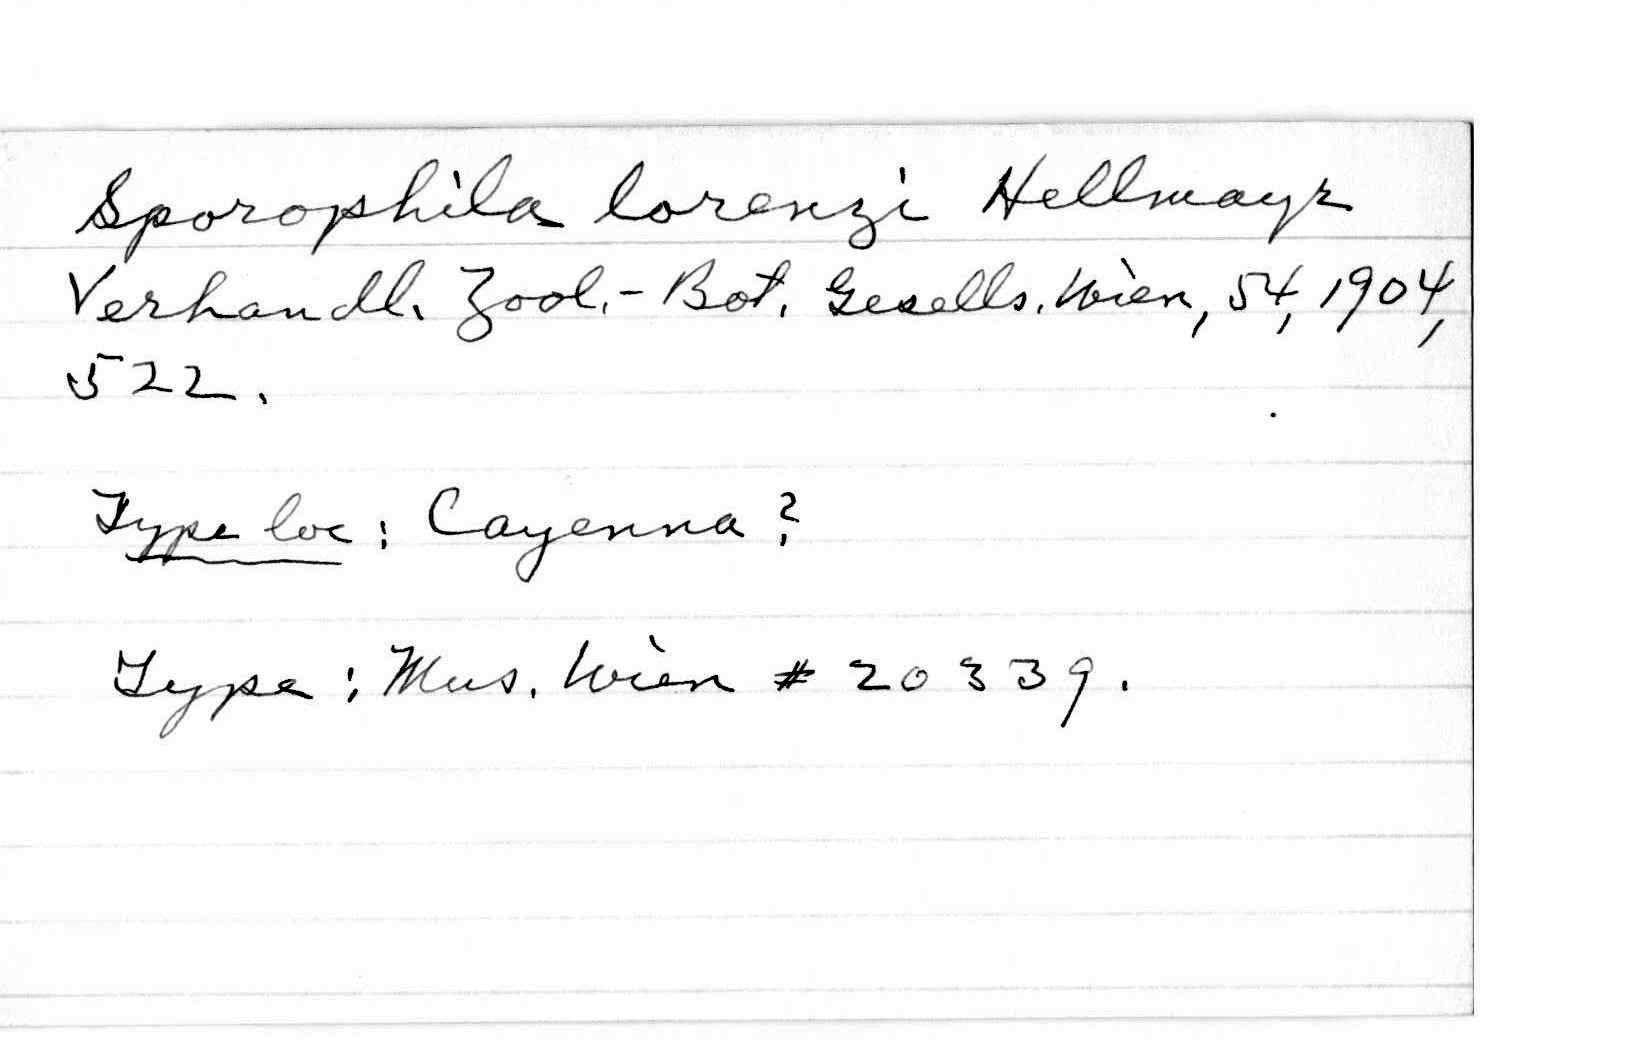 Sporophila lorenzi Hellmayr
Verhandl. Zool.-Bot. Gesells. Wien, 54, 1904,
522.
Type loc: Cayenna?
Type: Mus. Wien # 20339.